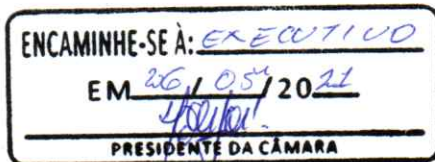 ENCAMINHE-SE À: EXECUTIVO
EM 26 / 05 / 2021
PRESIDENTE DA CÂMARA